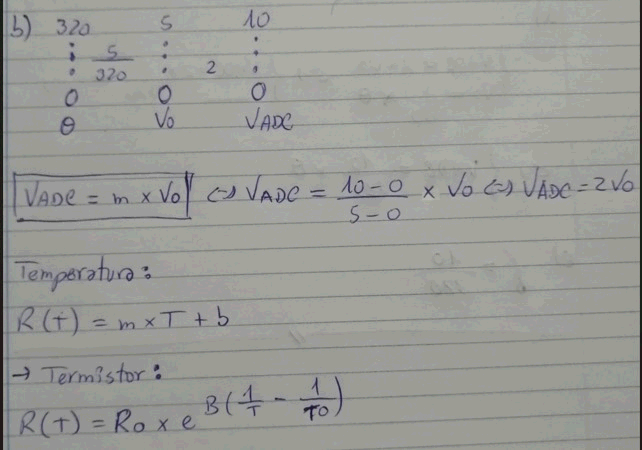 b) 320 5 10
: 5/320 : 2 :
0 0 0
θ Vo VADC
VADC = m × Vo ⇔ VADC = 10-0/5-0 × Vo ⇔ VADC = 2Vo
Temperatura:
R(T) = m × T + b
→ Termistor:
R(T) = Ro × e^B(1/T - 1/To)